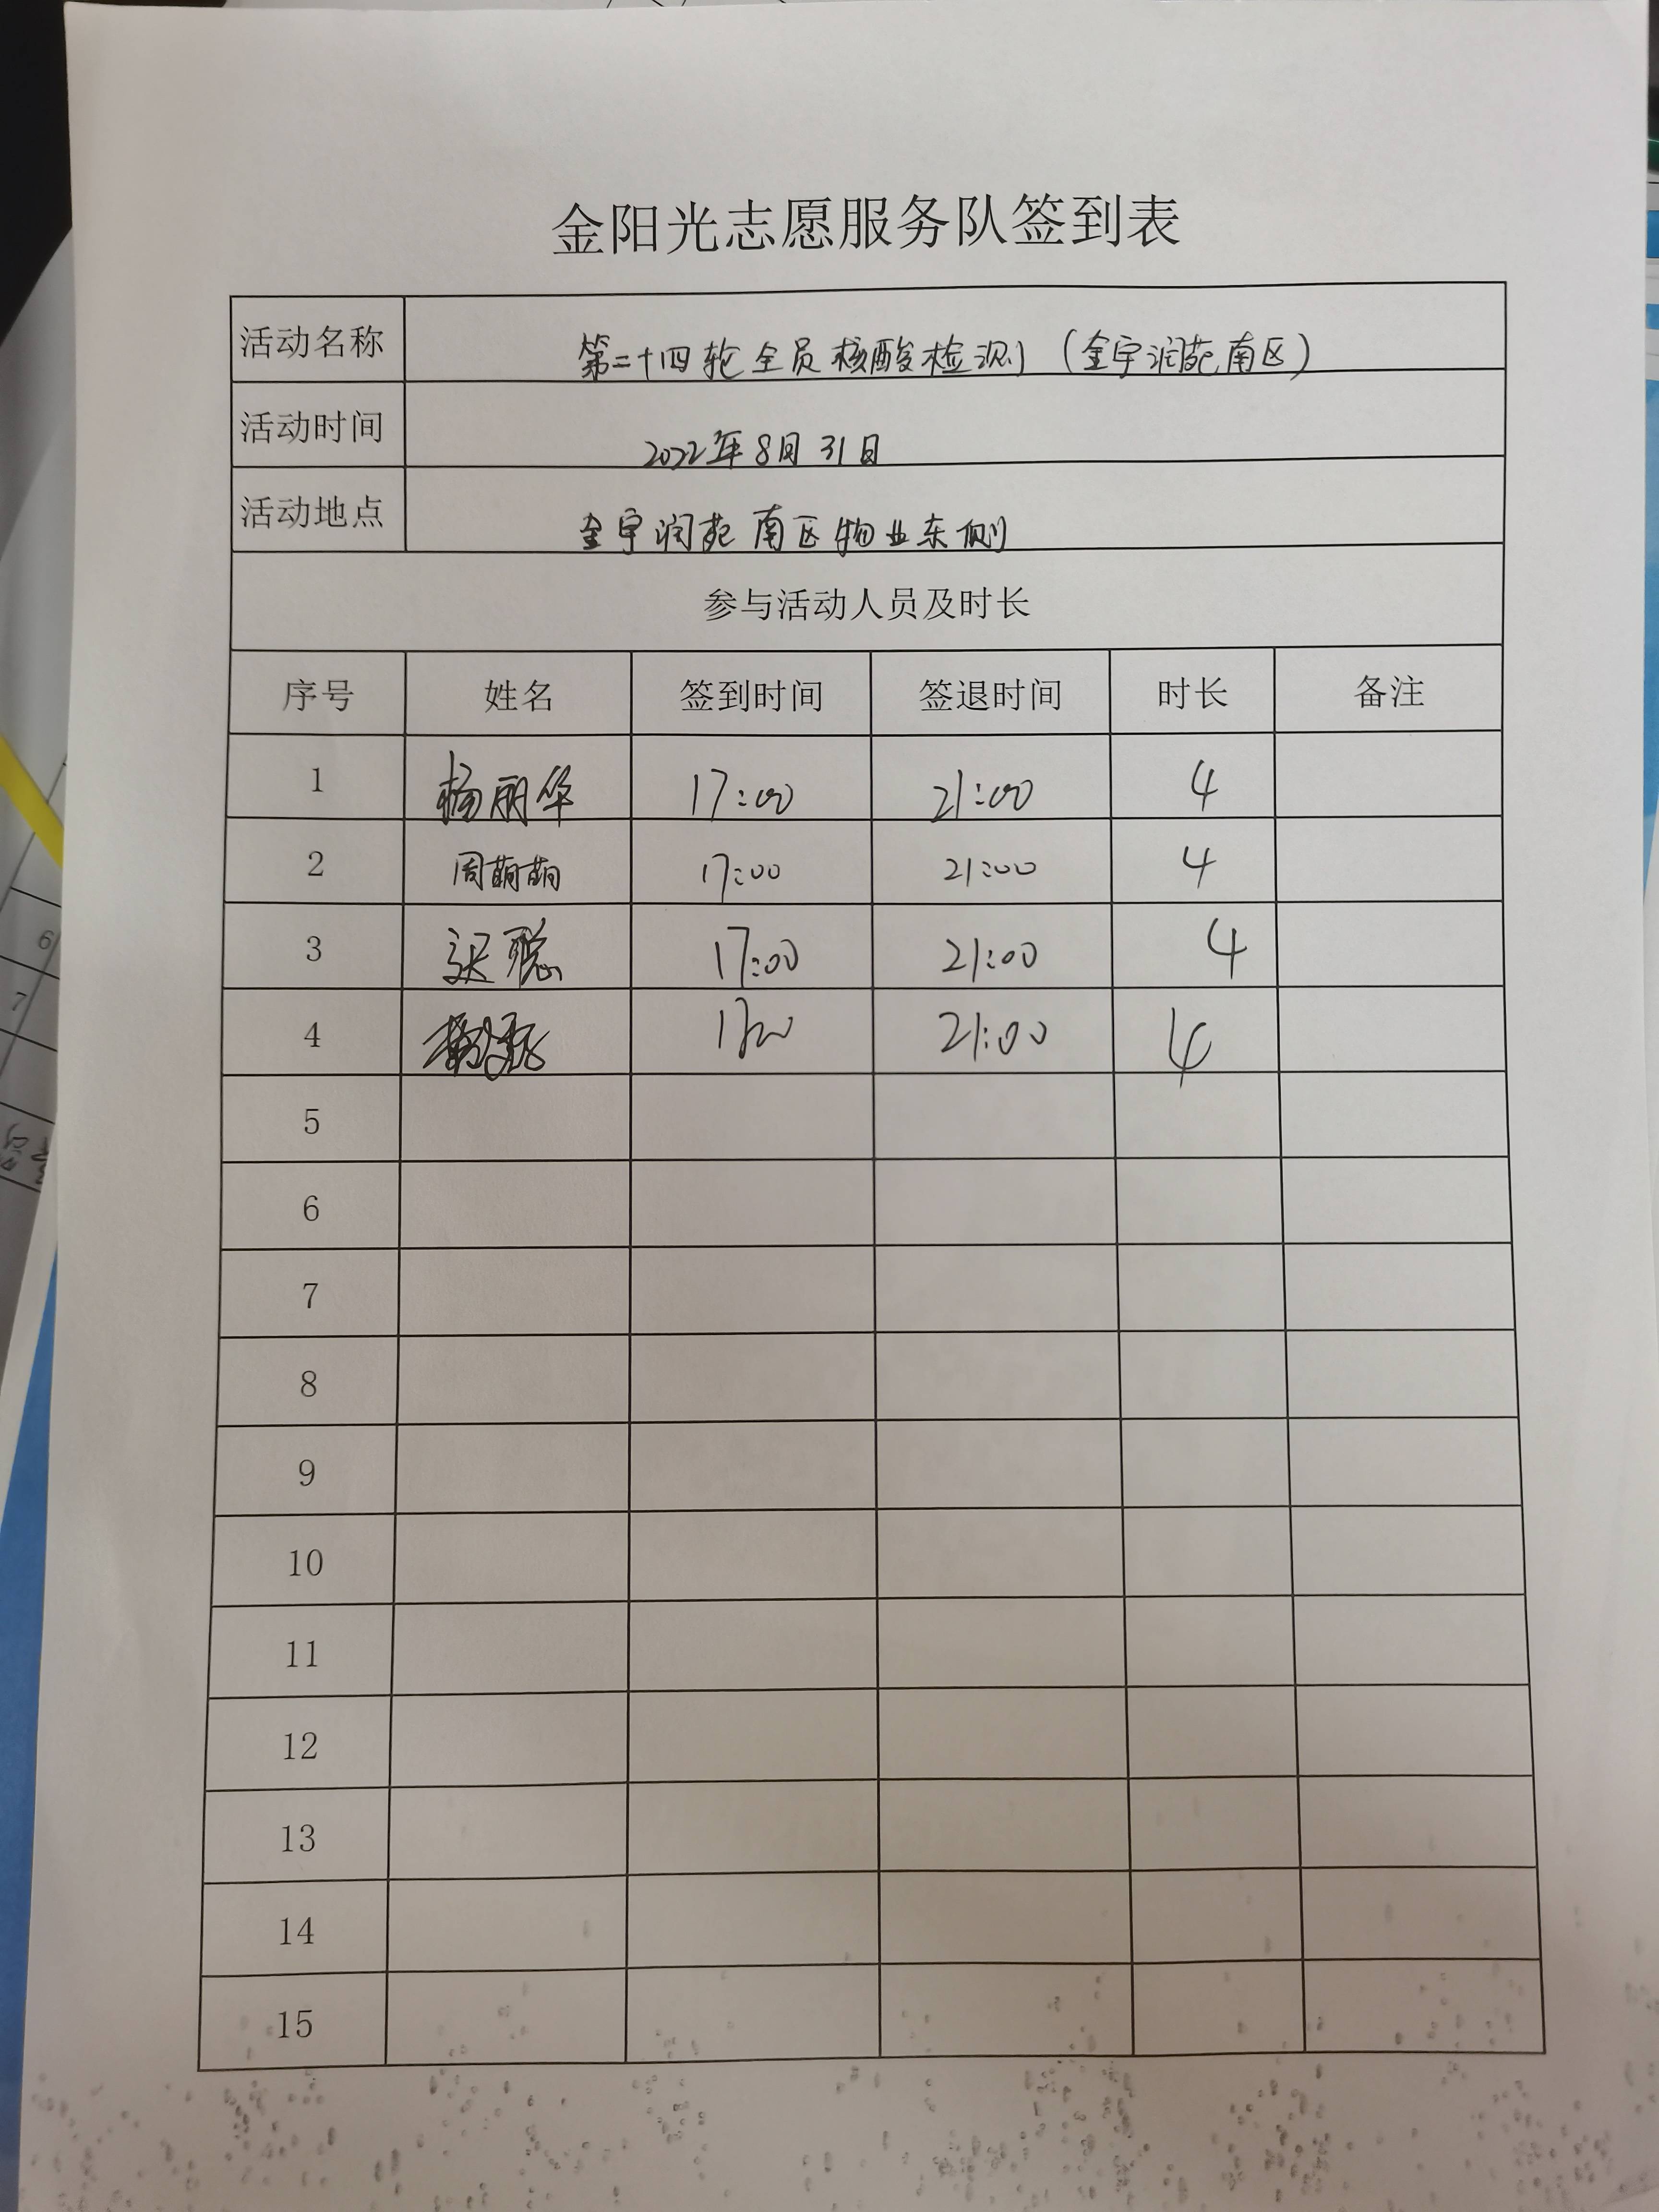 金阳光志愿服务队签到表
活动名称 第二十四轮全员核酸检测（金宇润苑南区）
活动时间 2022年8月31日
活动地点 金宇润苑南区物业东侧
参与活动人员及时长
序号 姓名 签到时间 签退时间 时长 备注
1 杨丽华 17:00 21:00 4
2 周萌萌 17:00 21:00 4
3 迟聪 17:00 21:00 4
4 21:00 4
5
6
7
8
9
10
11
12
13
14
15
6
7